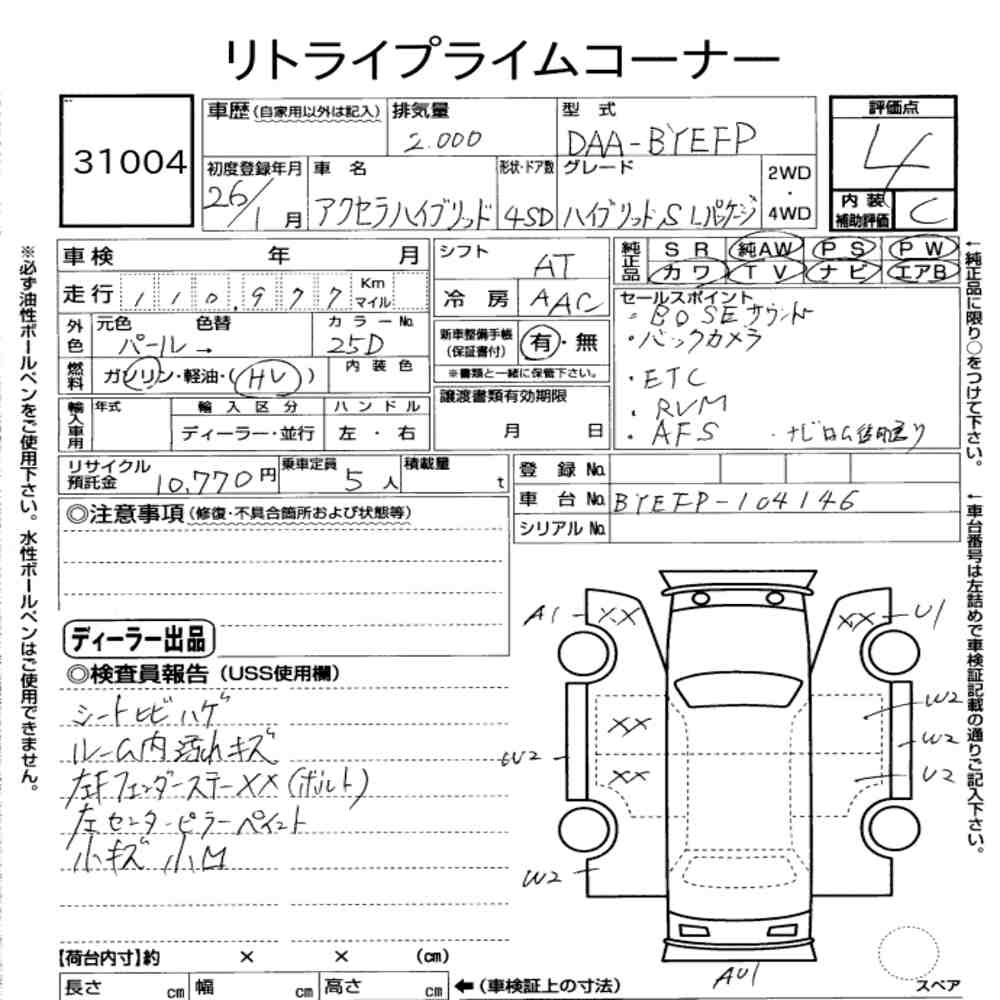 リトライプライムコーナー
31004
車歴(自家用以外は記入)
排気量
2.000
型 式
DAA-BYEFP
評価点
4
初度登録年月
26/1月
車 名
アクセラハイブリッド
形状・ドア数
4SD
グレード
ハイブリッド,S Lパッケージ
2WD
・
4WD
内装
補助評価
C
※必ず油性ボールペンをご使用下さい。水性ボールペンはご使用できません。
車検 年 月
走行 110,977 Km マイル
外色
元色 色替
パール→
カラーNo.
25D
燃料
ガソリン・軽油・(HV)
内装色
輸入車用
年式
輸入区分
ディーラー・並行
ハンドル
左・右
シフト
AT
冷房
AAC
新車整備手帳
(保証書付)
有・無
※書類と一緒に保管下さい。
譲渡書類有効期限
月 日
純正品
SR 純AW PS PW
カワ TV ナビ エアB
セールスポイント
・BOSEサウンド
・バックカメラ
・ETC
・RVM
・AFS ・ナビロム後日送り
←純正品に限り○をつけて下さい。
←車台番号は左詰めで車検証記載の通りご記入下さい。
リサイクル
預託金
10,770円
乗車定員
5人
積載量
t
登録No.
車台No. BYEFP-104146
シリアルNo.
◎注意事項(修復・不具合箇所および状態等)
ディーラー出品
◎検査員報告(USS使用欄)
シートヒビハゲ
ルーム内汚れキズ
左Fフェンダーステー××(ボルト)
左センターピラーペイント
小キズ小M
A1 ×× ×× U1
××
W2
W2
W2
××
U2
W2
AU1
スペア
【荷台内寸】約 × × (cm)
長さ cm 幅 cm 高さ cm ←(車検証上の寸法)